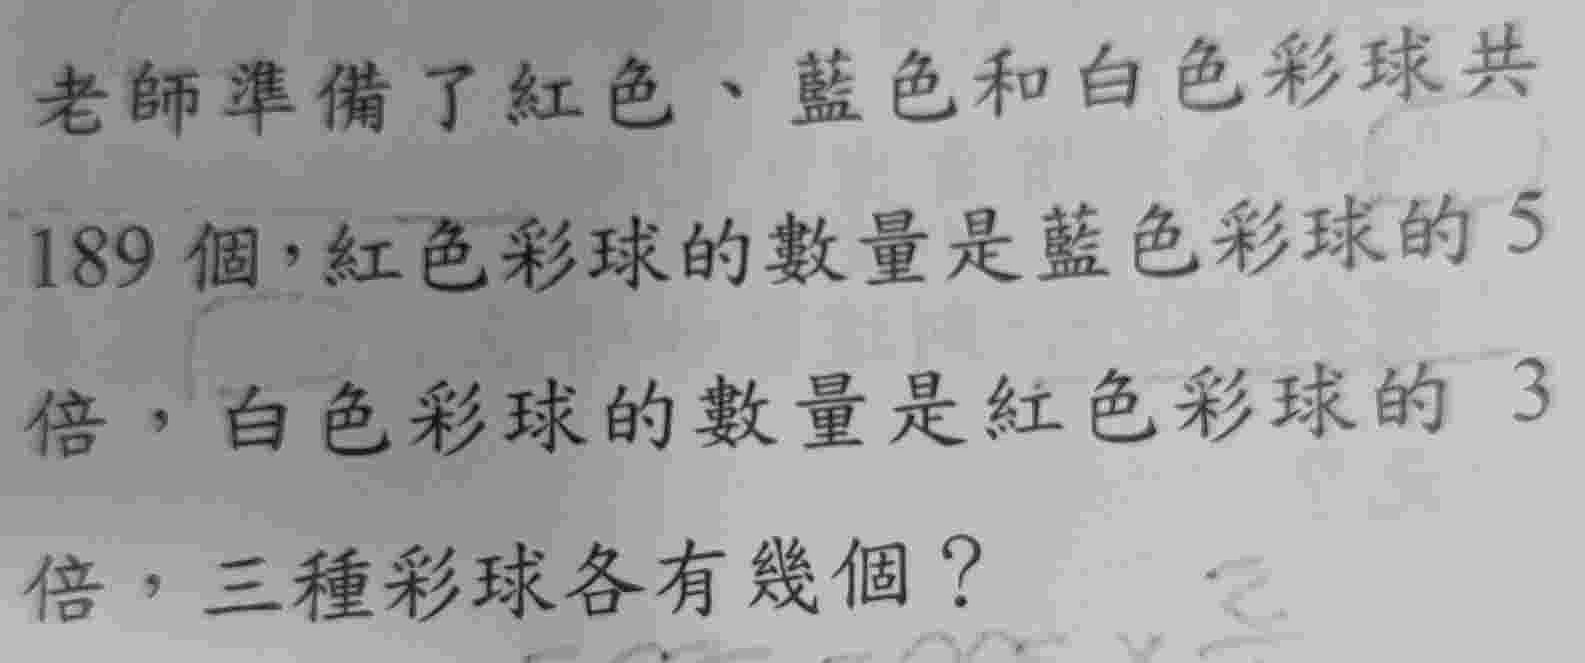 老師準備了紅色、藍色和白色彩球共
189 個，紅色彩球的數量是藍色彩球的 5
倍，白色彩球的數量是紅色彩球的 3
倍，三種彩球各有幾個？